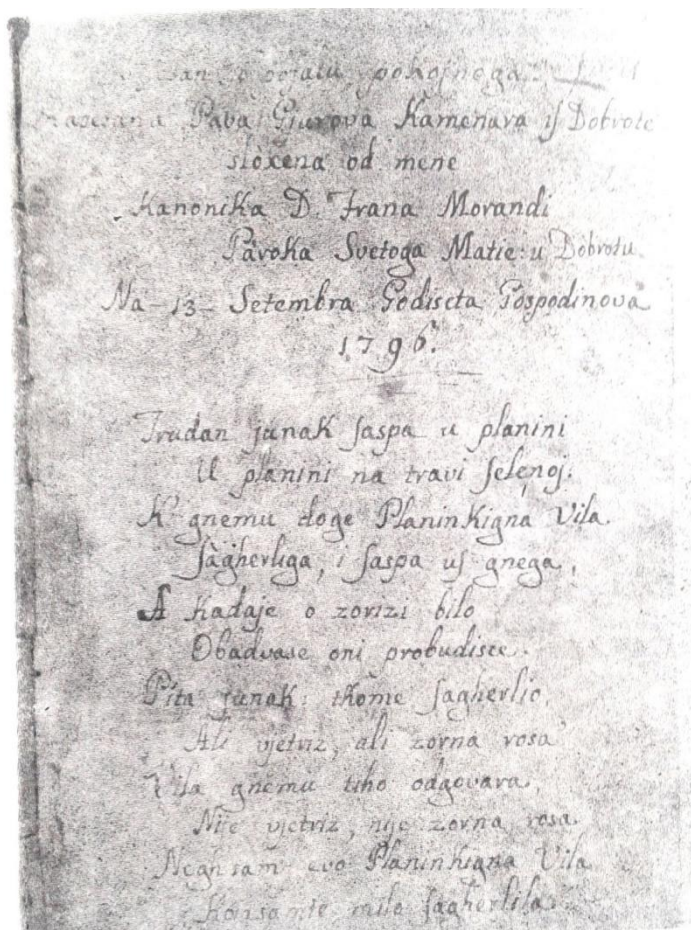 pokojnoga
Pava Gjurova Kamenara iſ Dobrote
sloxena od mene
Kanonika D. Frana Morandi
Paroka Svetoga Matie u Dobrotu
Na - 13 - Setembra Godiscta Gospodinova
1796.
Trudan junak ſaspa u planini
U planini na travi ſelenoj.
K' gnemu doge Planinkigna Vila
ſagherliga, i ſaspa uſ gnega,
A kadaje o zorizi bilo
Obadvase oni probudisce.
Pita junak: tkome ſagherlio,
Ali vjetriz, ali zorna rosa
Vila gnemu tiho odgovara,
Nije vjetriz, nije zorna rosa
Negh sam evo Planinkigna Vila
milo ſagherlila